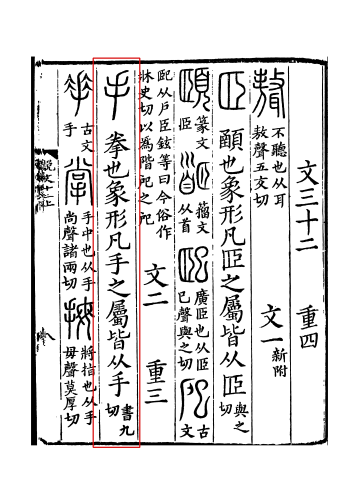 聱 不聽也从耳敖聲五交切
文三十二 重四
文一 新附
𦣞 顄也象形凡𦣞之屬皆从𦣞 與之切
頤 篆文𦣞 𦣞 籒文从首
巸 廣𦣞也从𦣞巳聲與之切 古文
巸从戶臣鉉等曰今俗作
牀史切以為階戺之戺
文二 重三
手 拳也象形凡手之屬皆从手 書九切
古文手
掌 手中也从手尚聲諸兩切
拇 將指也从手母聲莫厚切
說文十二上